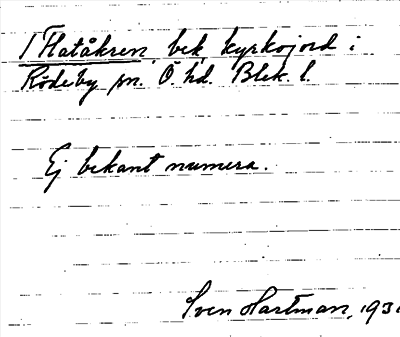 1 Flatåkren, bek. kyrkojord i
Rödeby sn. Ö hd. Blek. l.
Ej bekant numera.
Sven Hartman, 193